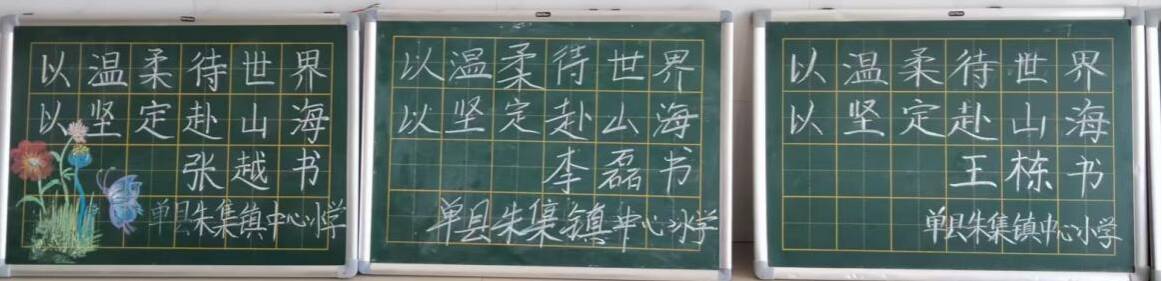 以温柔待世界
以坚定赴山海
张越书
单县朱集镇中心小学
以温柔待世界
以坚定赴山海
李磊书
单县朱集镇中心小学
以温柔待世界
以坚定赴山海
王栋书
单县朱集镇中心小学